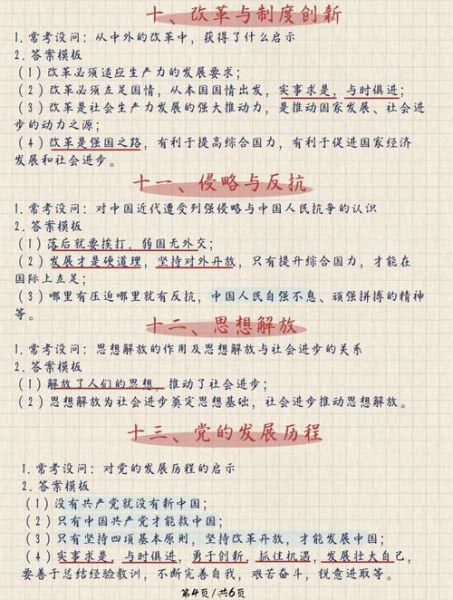 十、改革与制度创新
1.常考设问：从中外的改革中，获得了什么启示
2.答案模板
(1)改革必须适应生产力的发展要求；
(2)改革必须立足国情，从本国国情出发，实事求是，与时俱进；
(3)改革是社会生产力发展的强大推动力，是推动国家发展、社会进
步的动力之源；
(4)改革是强国之路，有利于提高综合国力，有利于促进国家经济
发展和社会进步。
十一、侵略与反抗
1.常考设问：对中国近代遭受列强侵略与中国人民抗争的认识
2.答案模板
(1)落后就要挨打，弱国无外交；
(2)发展才是硬道理，坚持对外开放，只有提升综合国力，才能在
国际上立足；
(3)哪里有压迫哪里就有反抗，中国人民自强不息、顽强拼搏的精神
等。
十二、思想解放
1.常考设问：思想解放的作用及思想解放与社会进步的关系
2.答案模板
(1)解放了人们的思想，推动了社会进步；
(2)思想解放为社会进步奠定思想基础，社会进步推动思想解放。
十三、党的发展历程
1.常考设问：对党的发展历程的启示
2.答案模板
(1)没有共产党就没有新中国；
(2)只有中国共产党才能救中国；
(3)只有坚持四项基本原则，坚持改革开放，才能发展中国；
(4)实事求是，与时俱进，勇于创新，抓住机遇，发展壮大自己，
要善于总结经验教训，不断完善自我，艰苦奋斗，锐意进取等。
第4页/共6页